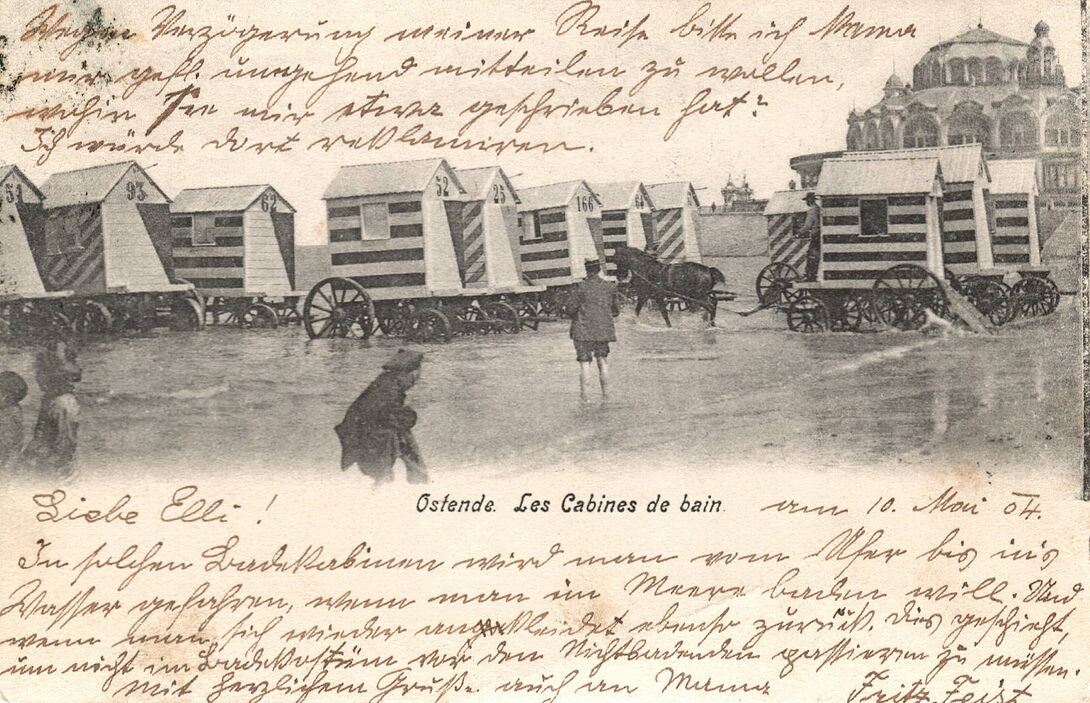 Wegen Verzögerung meiner Reise bitte ich Mama
mir gefl. umgehend mitteilen zu wollen,
wohin Sie mir etwa geschrieben hat?
Ich würde dort reklamiren.
51
93
62
52
25
166
64
Ostende. Les Cabines de bain.
am 10. Mai 04.
Liebe Elli!
In solchen Badekabinen wird man vom Ufer bis in's
Wasser gefahren, wenn man im Meere baden will. Und
wenn man sich wieder angekleidet ebenso zurück. Dies geschieht,
um nicht im Badekostüm vor den Nichtbadenden passieren zu müssen.
Mit herzlichem Gruße auch an Mama
Fritz Feist